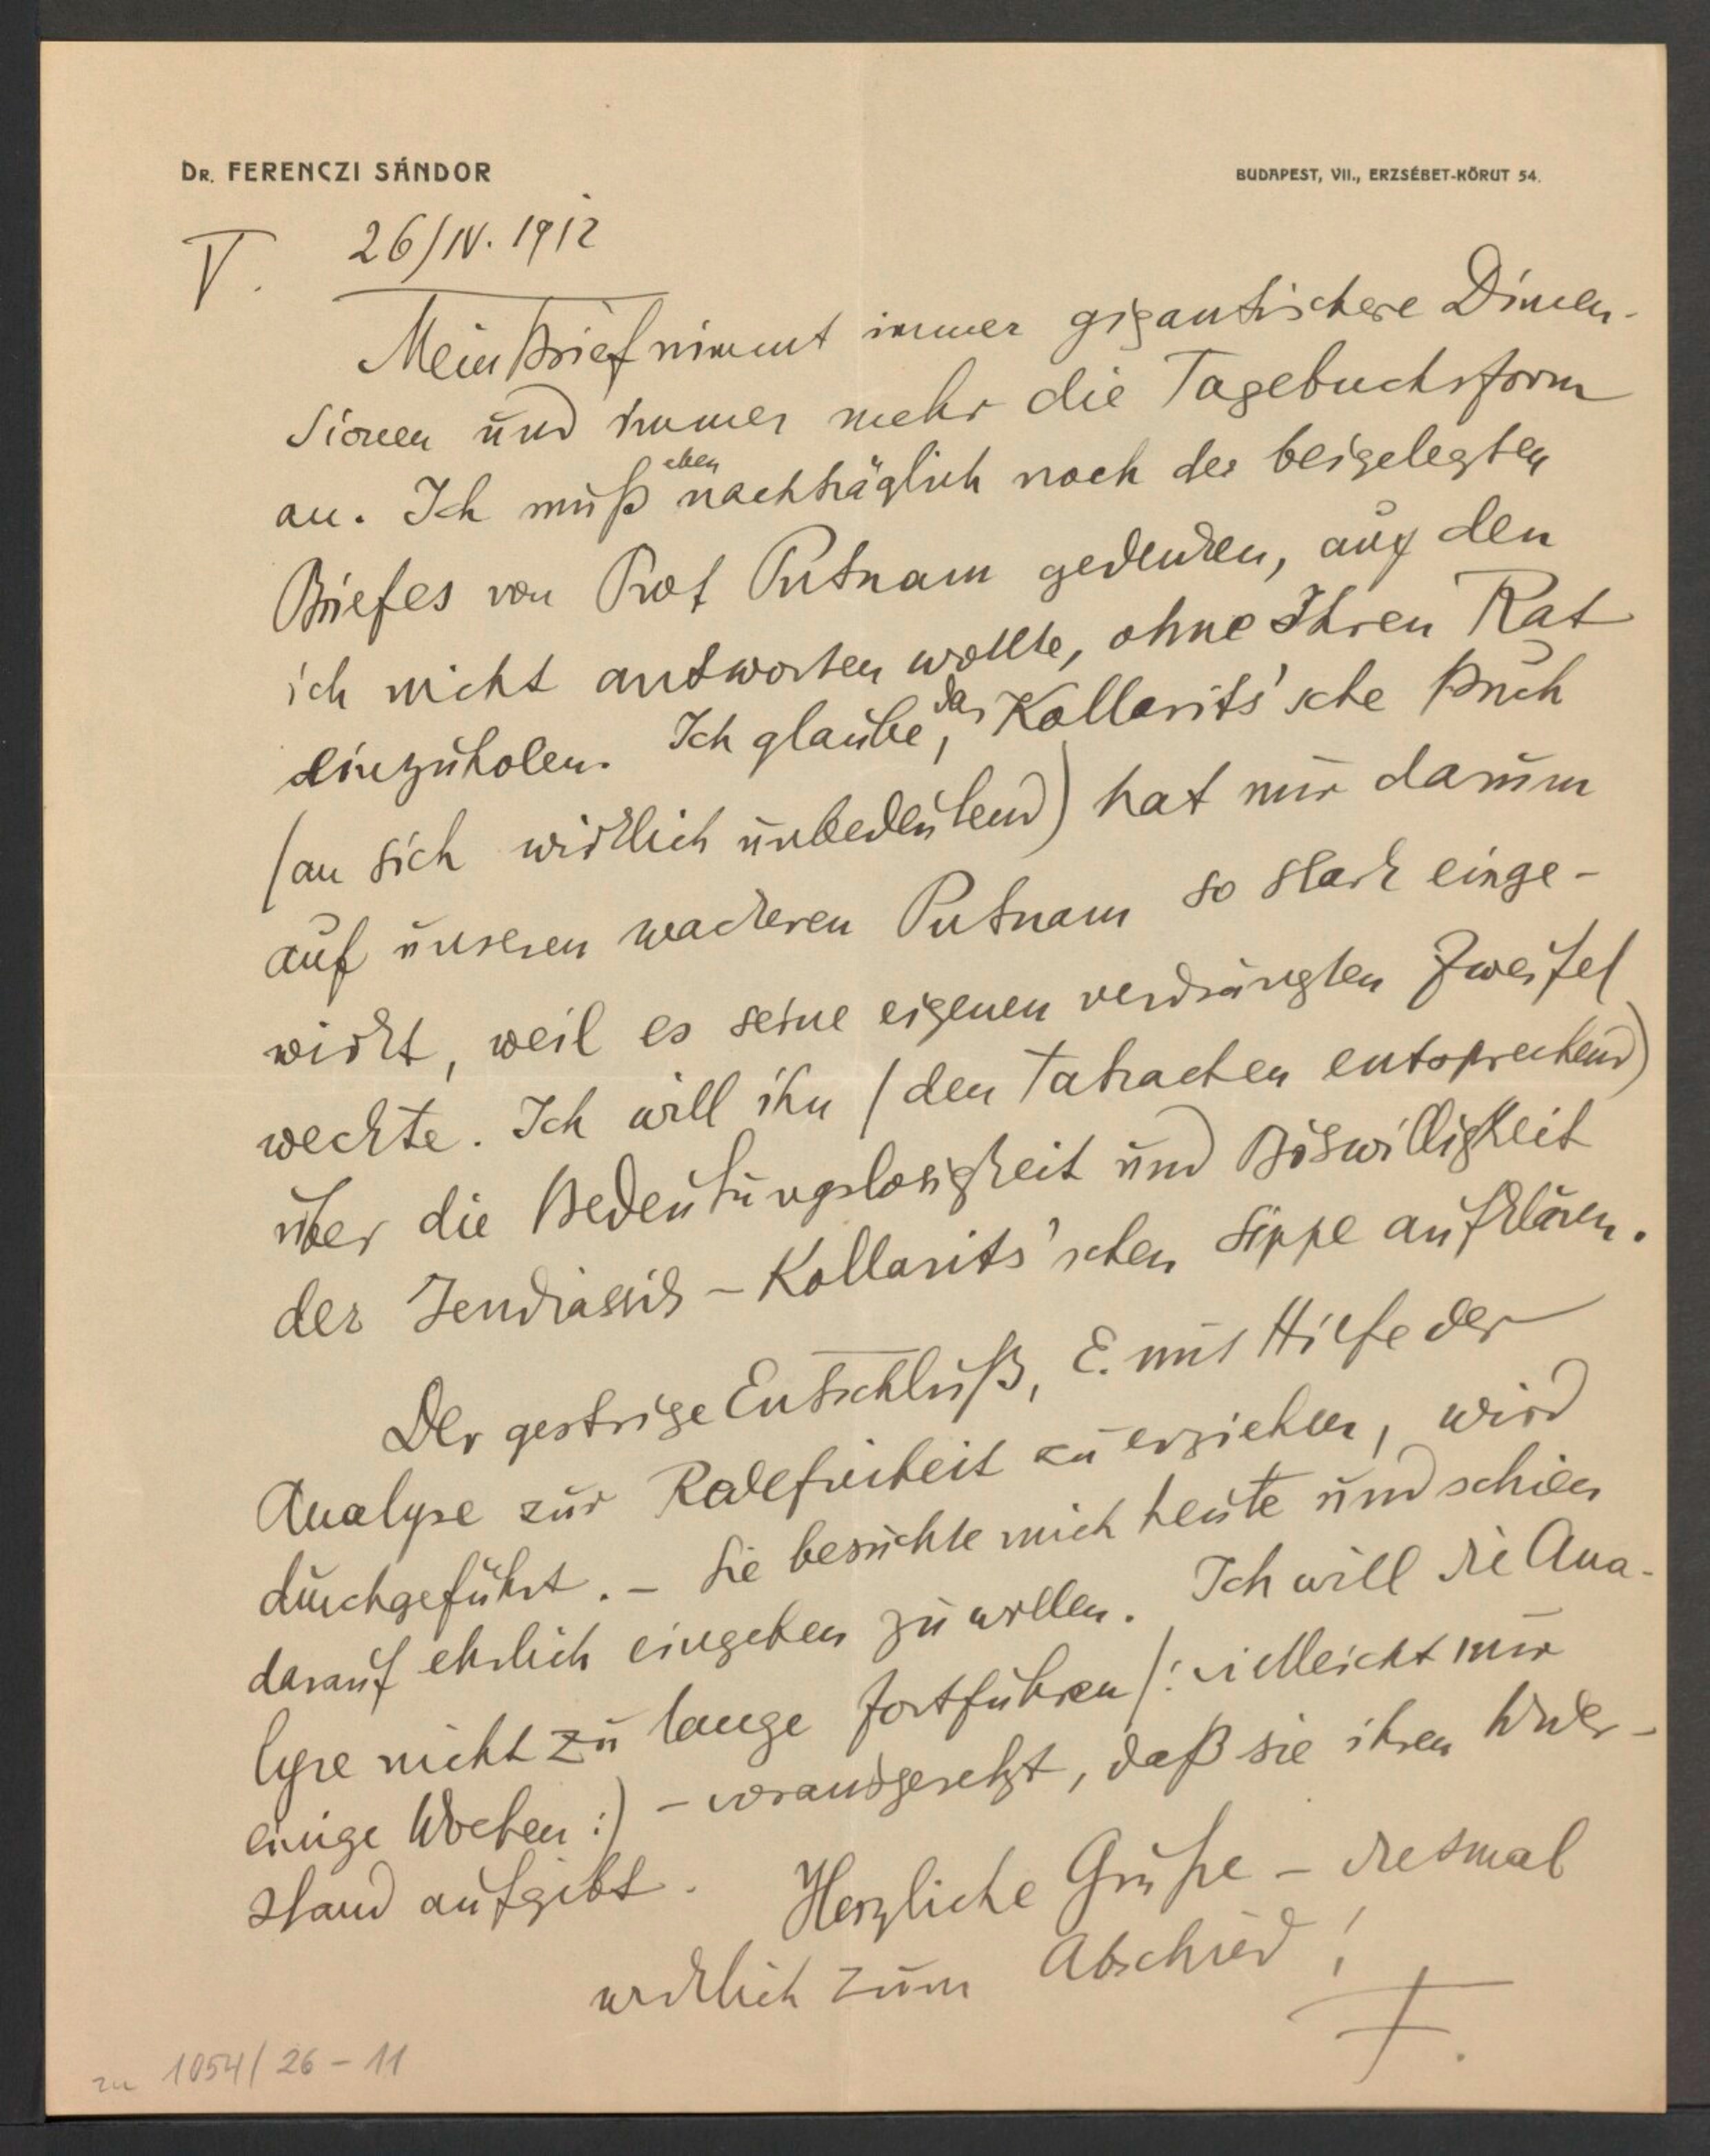 Dr. FERENCZI SÁNDOR
BUDAPEST, VII., ERZSÉBET-KÖRUT 54.
V. 26/IV. 1912
Mein Brief nimmt immer gigantischere Dimen-
sionen und immer mehr die Tagebuchsform
an. Ich muß eben nachträglich noch des beigelegten
Briefes von Prof Putnam gedenken, auf den
ich nicht antworten wollte, ohne Ihren Rat
einzuholen. Ich glaube, das Kollarits'sche Buch
(an sich wirklich unbedeutend) hat nur darum
auf unseren wackeren Putnam so stark einge-
wirkt, weil es seine eigenen verdrängten Zweifel
weckte. Ich will ihn (den Tatsachen entsprechend)
über die Bedeutungslosigkeit und Böswilligkeit
der Jendrássik-Kollarits'schen Sippe aufklären.
Der gestrige Entschluß, E. mit Hilfe der
Analyse zur Redefreiheit zu erziehen, wird
durchgeführt. – Sie besuchte mich heute und schien
darauf ehrlich eingehen zu wollen. Ich will die Ana-
lyse nicht zu lange fortführen (: vielleicht nur
einige Wochen :) – vorausgesetzt, daß sie ihren Wider-
stand aufgibt.
Herzliche Grüße – diesmal
wirklich zum Abschied!
F.
zu 1054/26-11